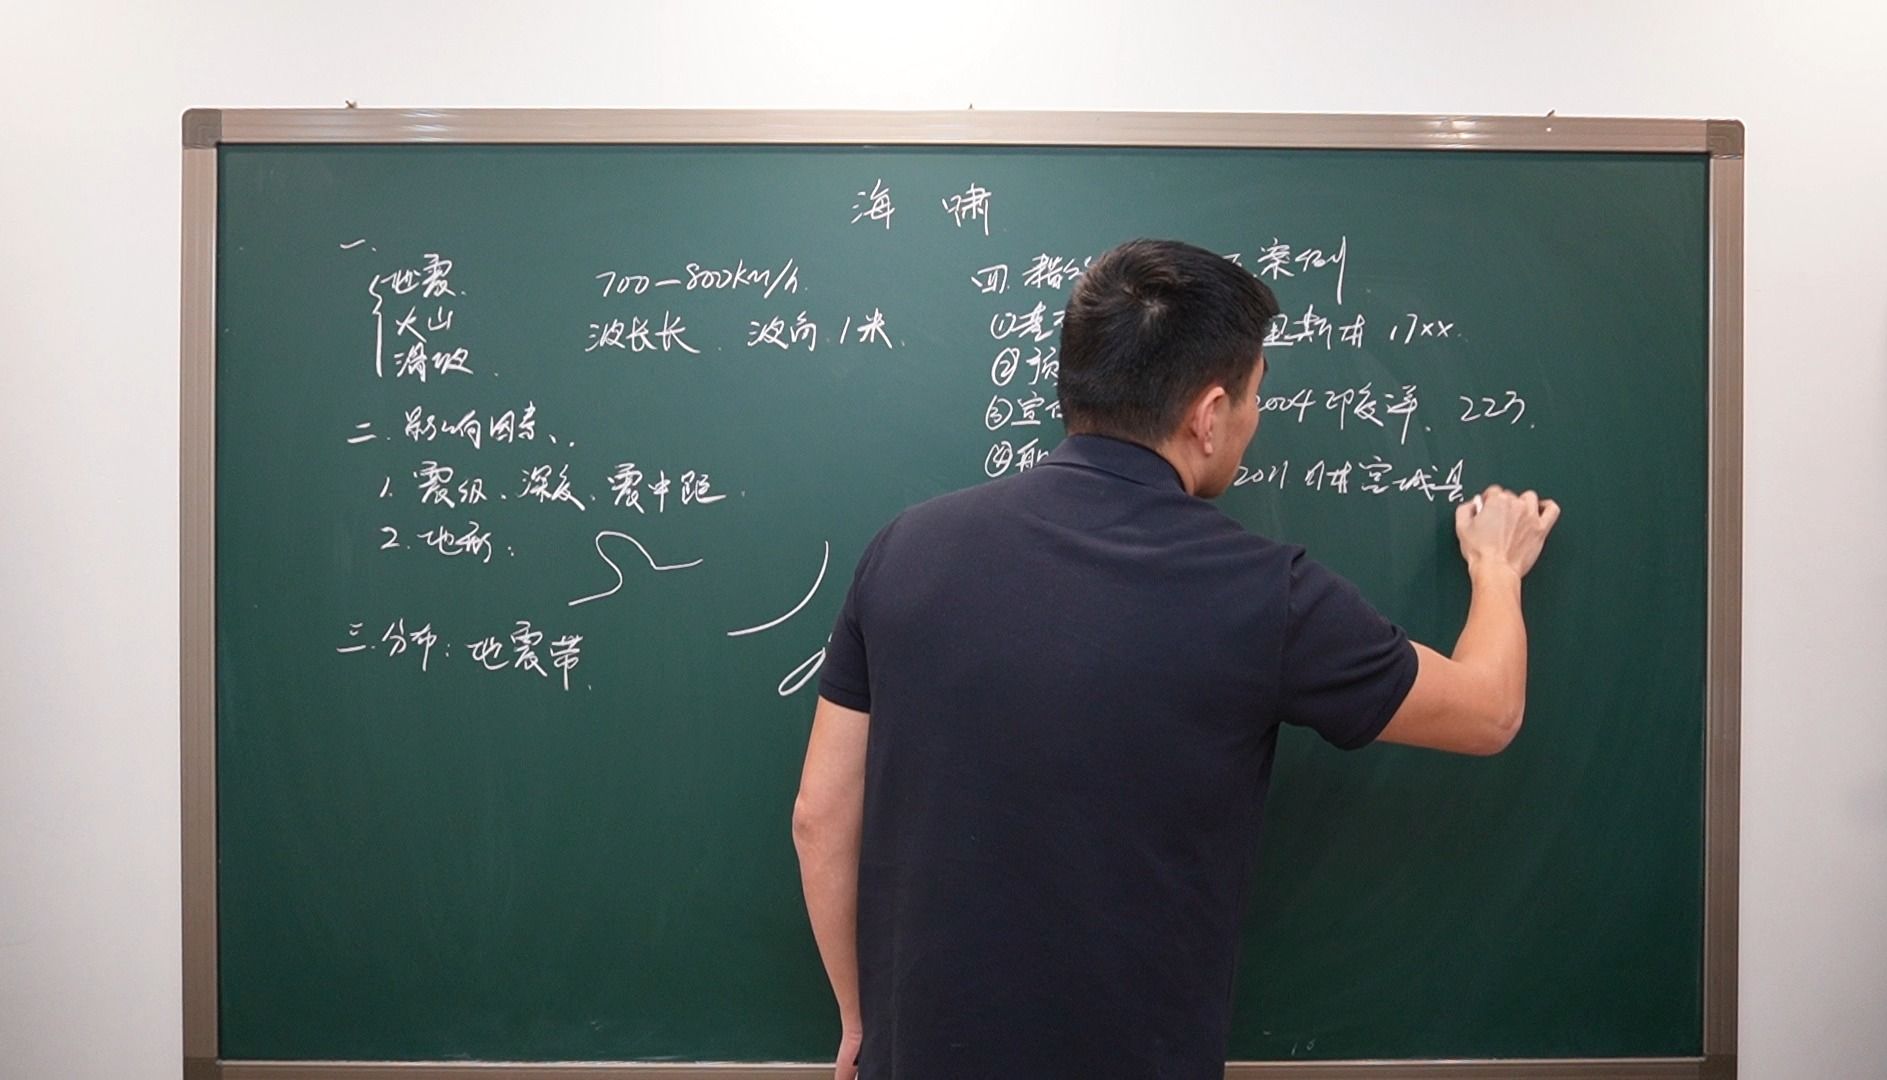 海 啸
一.
地震.
火山
滑坡.
700—800km/h.
波长长. 波高1米.
二. 影响因素..
1. 震级、深度、震中距.
2. 地形:
三.分布:地震带.
四. 措
①
② 预
③ 宣
④ 船
案例
里斯本 17xx.
2004 印度洋. 22万.
2011 日本宫城县